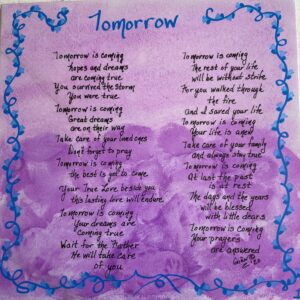 Tomorrow
Tomorrow is coming
hopes and dreams
are coming true
You survived the storm
You were true
Tomorrow is coming
Great dreams
are on their way
Take care of your loved ones
Don't forget to pray
Tomorrow is coming
the best is yet to come
Your True Love beside you
this lasting love will endure
Tomorrow is coming
Your dreams are
coming true
Wait for the Father
He will take care
of you
Tomorrow is coming
The rest of your life
will be without strife
For you walked through
the fire
and I saved your life
Tomorrow is coming
Your life is anew
Take care of your family
and always stay true
Tomorrow is coming
At last the past
is at rest
The days and the years
will be blessed
with little dears
Tomorrow is coming
Your prayers
are answered